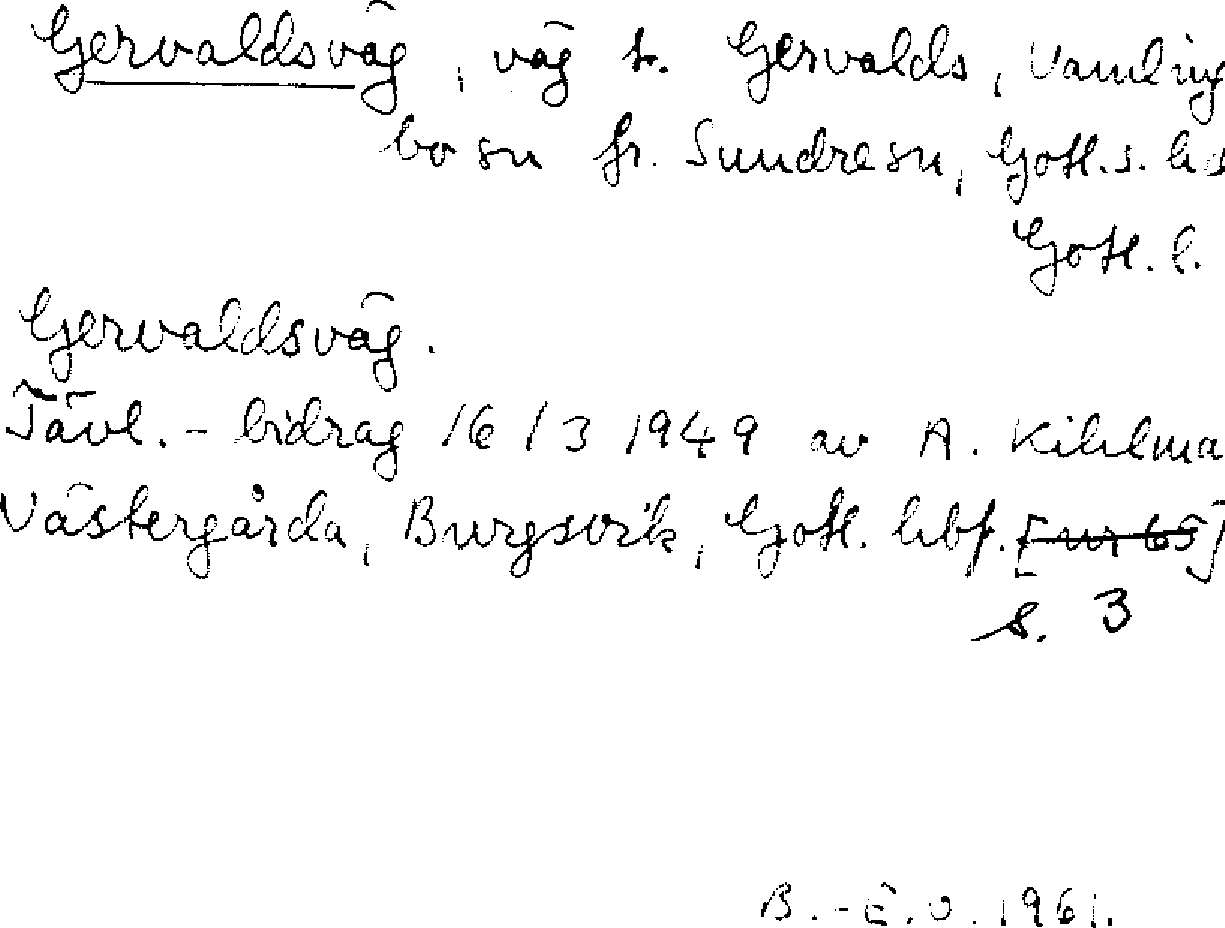 Gervaldsväg, väg t. Gervalds, Vamling
bo sn fr. Sundre sn, Gotl. s. hd
Gotl. l.
Gervaldsväg.
Tävl.-bidrag 16/3 1949 av A. Kihlma
Västergårda, Burgsvik, Gotl. hbf. [nr 65]
s. 3
B.-E.O. 1961.